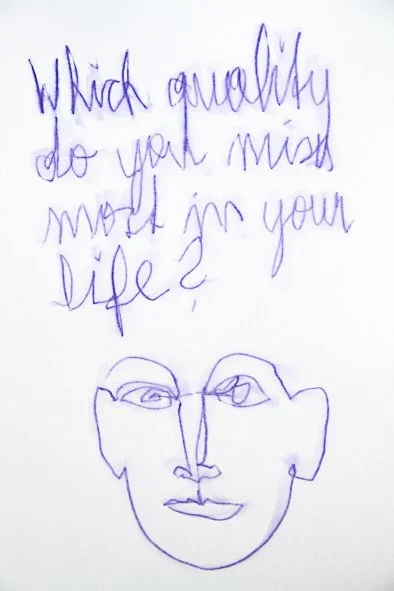 Which quality
do you miss
most in your
life?